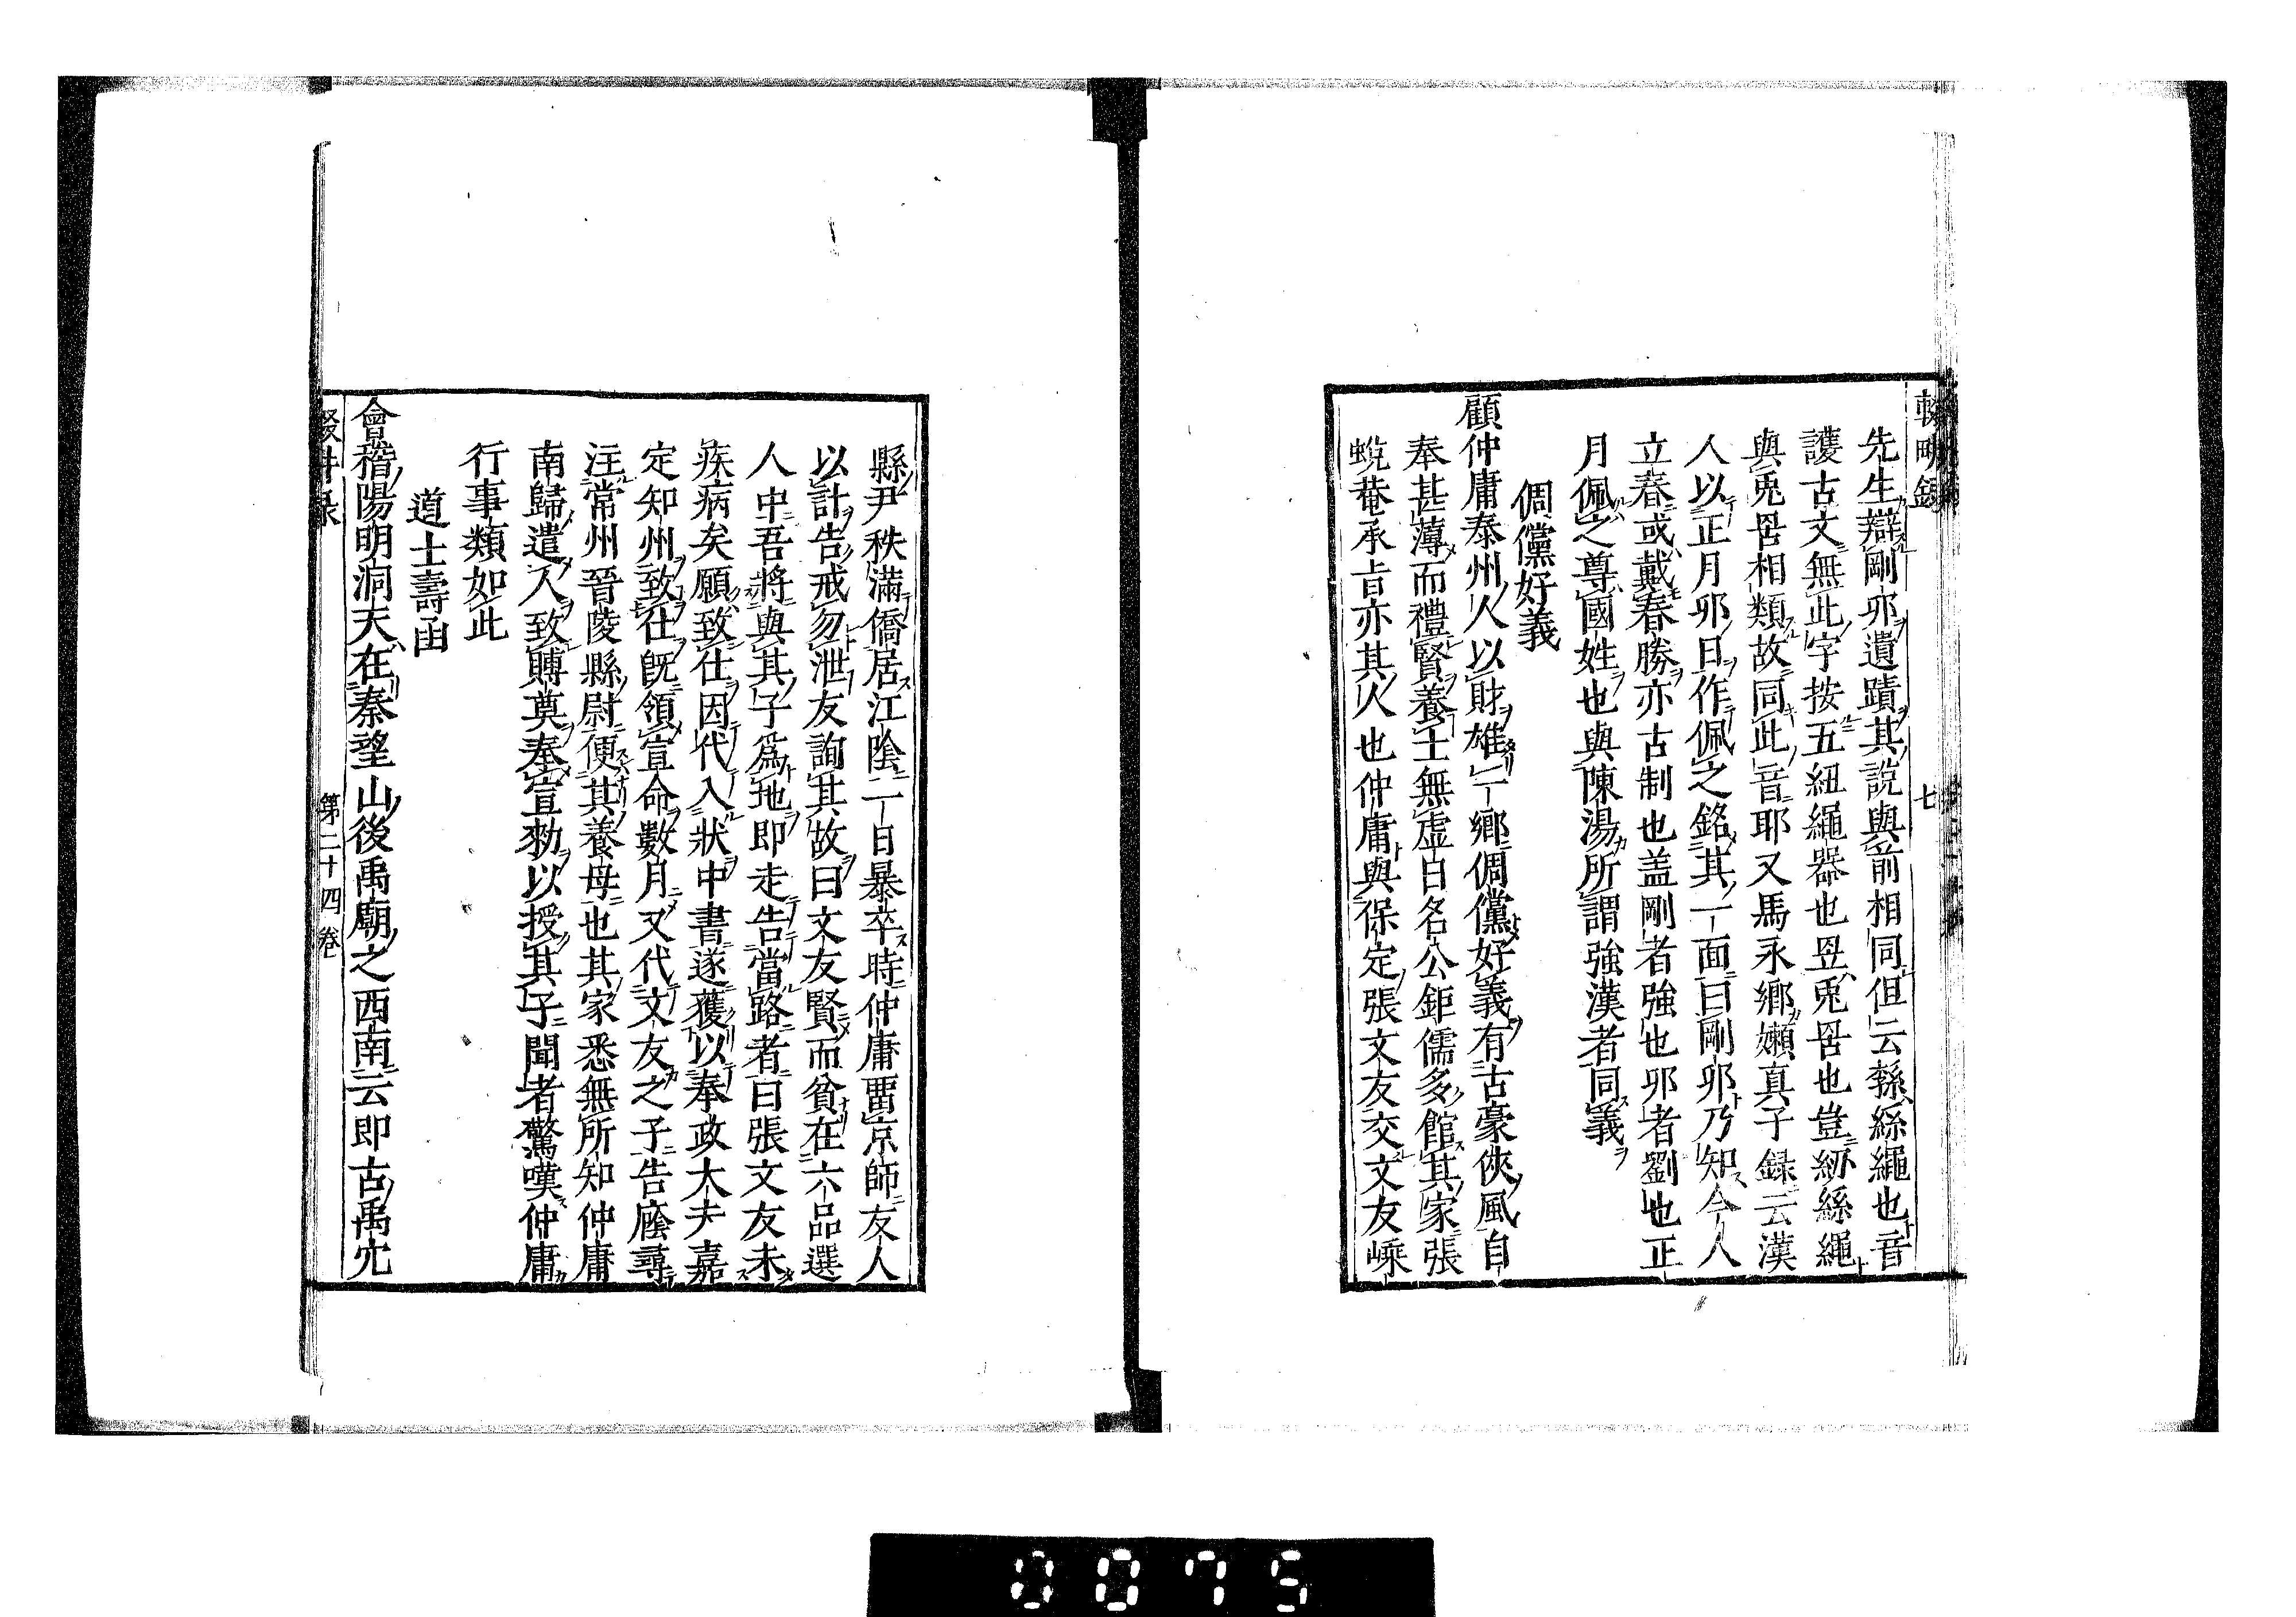 輟畊録 七
先生辯剛卯遺蹟其説與前相同但云綔絲繩也音
護古文無此字按五紐繩器也㫒兎罟也豈紛絲繩
與兎罟相類故同此音耶又馬永卿嬾真子録云漢
人以正月卯日作佩之銘其一面曰剛卯乃知今人
立春或戴春勝亦古制也盖剛者強也卯者劉也正
月佩之尊國姓也與陳湯所謂強漢者同義
倜儻好義
顧仲庸泰州人以財雄一鄉倜儻好義有古豪俠風自
奉甚薄而禮賢養士無虚日名公鉅儒多館其家張
蛻菴承旨亦其人也仲庸與保定張文友交文友嵊
縣尹秩滿僑居江陰一日暴卒時仲庸畱京師友人
以訃告戒勿泄友詢其故曰文友賢而貧在六品選
人中吾將與其子爲地即走告當路者曰張文友未
疾病矣願致仕因代入狀中書遂獲以奉政大夫嘉
定知州致仕既領宣命數月又代文友之子告廕尋
注常州晉陵縣尉便其養母也其家悉無所知仲庸
南歸遣人致賻奠奉宣勑以授其子聞者驚嘆仲庸
行事類如此
道士壽函
會稽陽明洞天在秦望山後禹廟之西南云即古禹穴
輟耕録 第二十四卷
0075